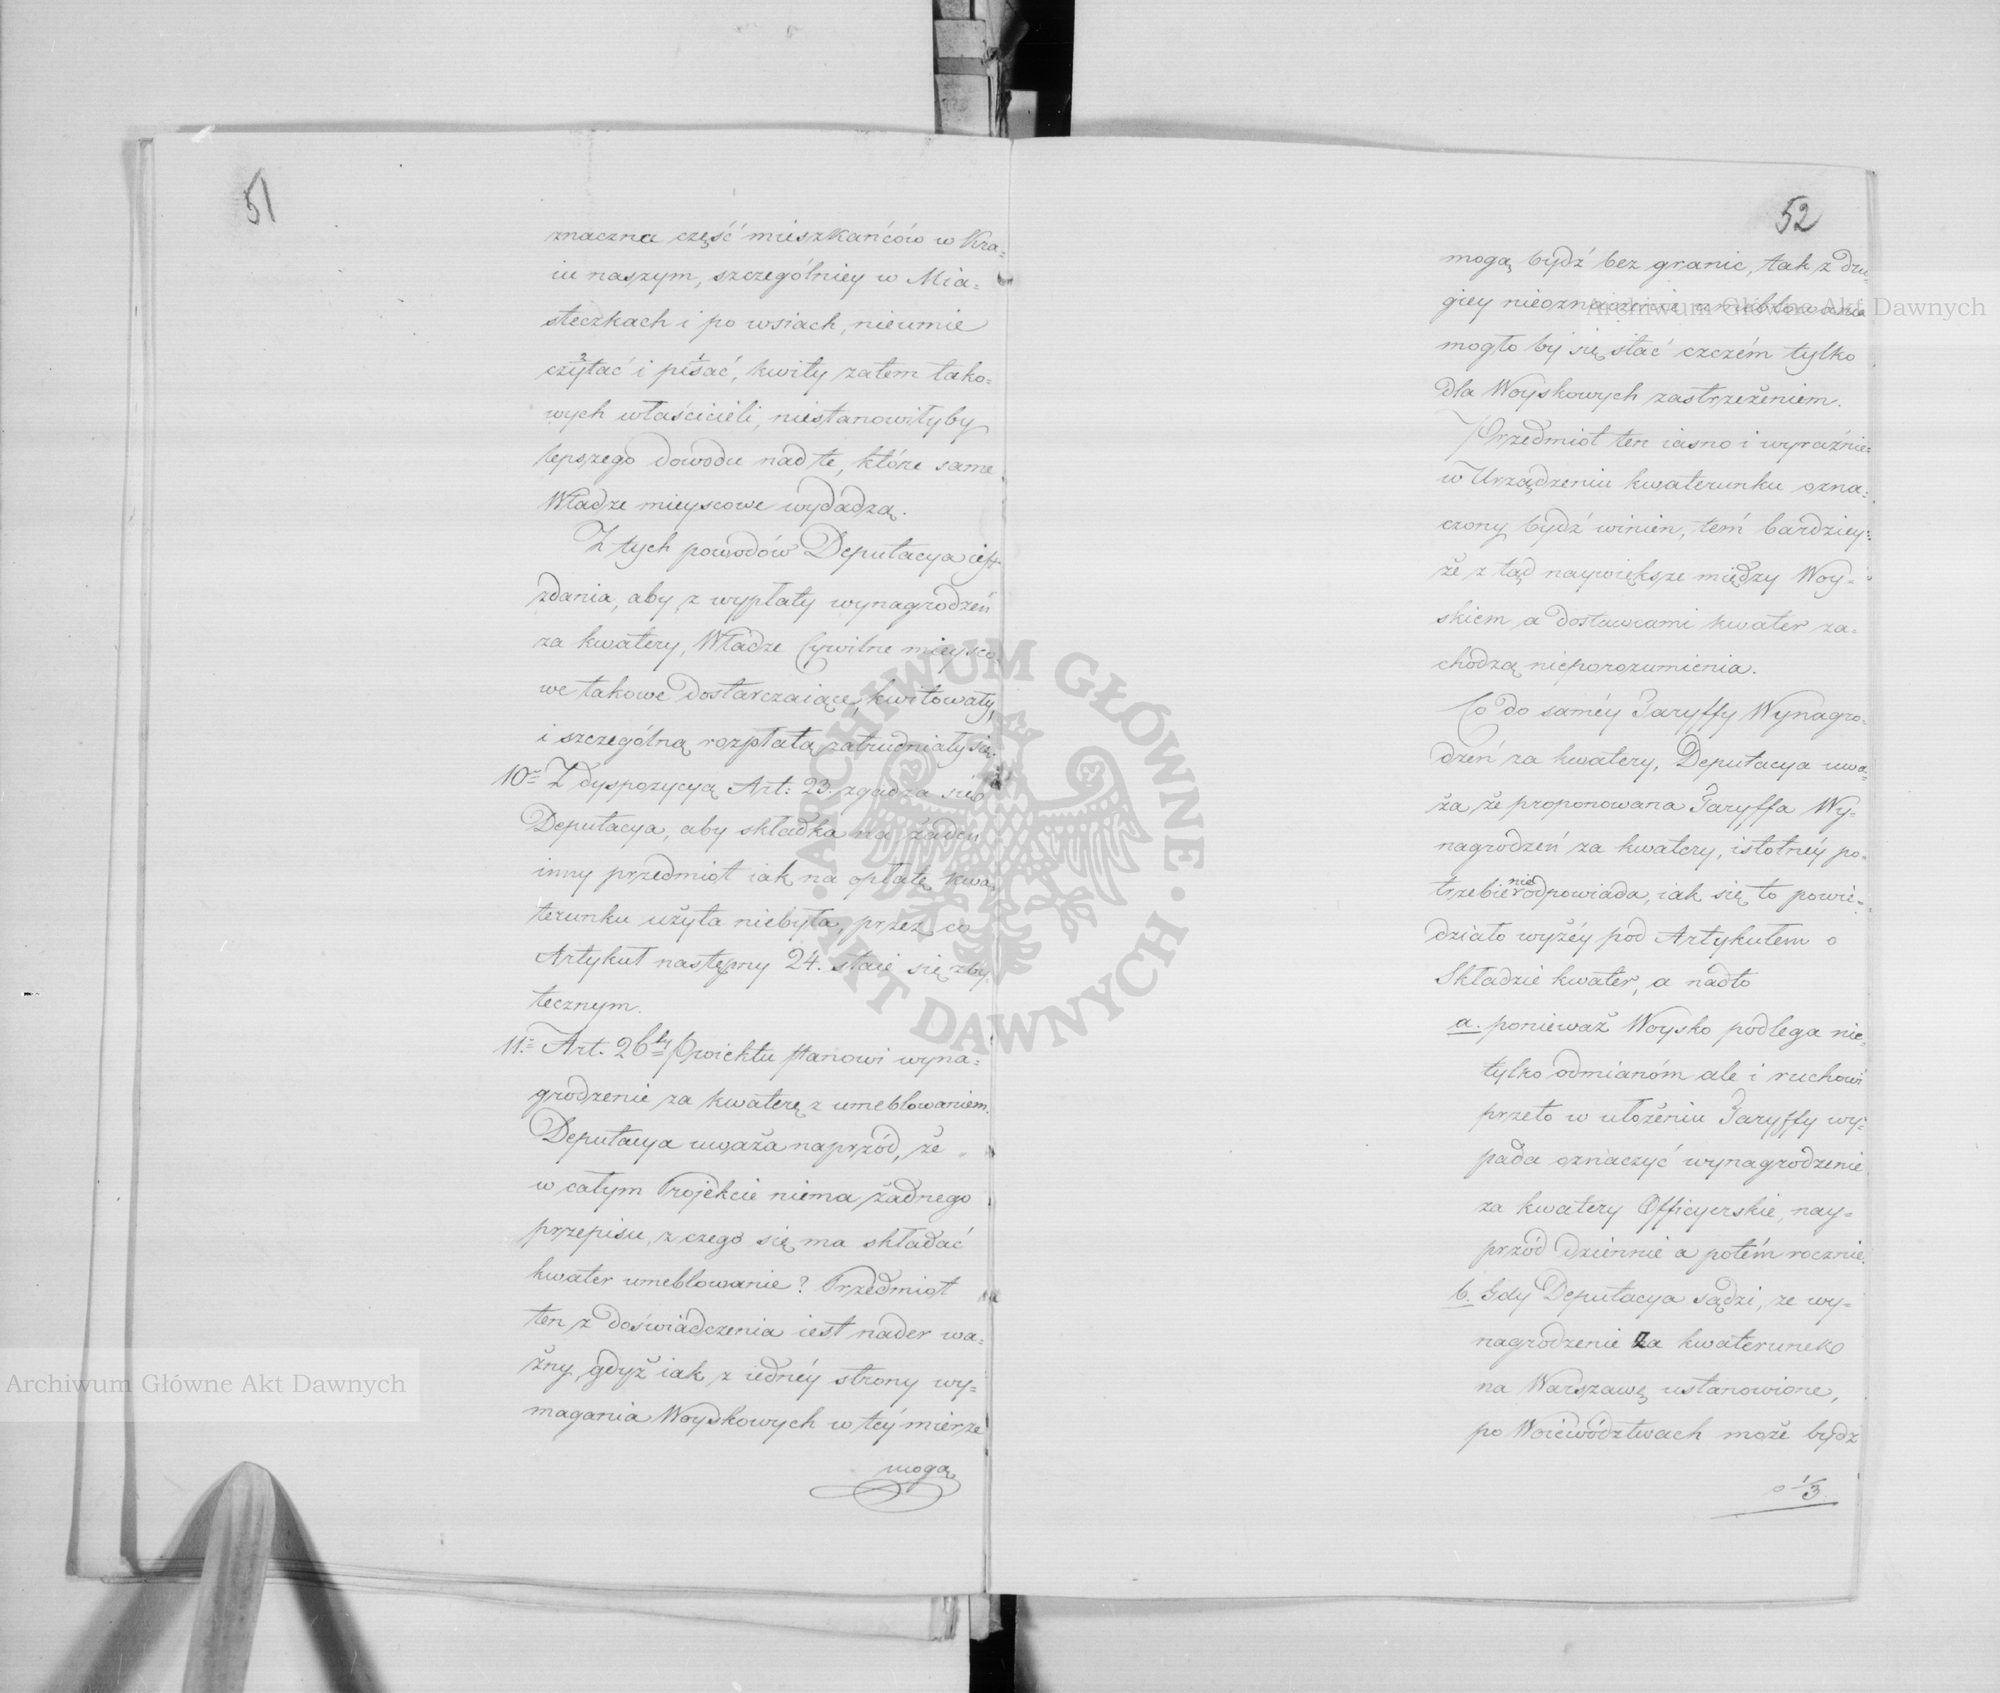 51
znaczna część mieszkańców w Kra=
iu naszym, szczególniey w Mia=
steczkach i po wsiach, nieumie
czytać i pisać, kwity zatem tako=
wych właścicieli, niestanowiłyby
lepszego dowodu nad te, które same
Władze mieyscowe wydadzą.
Z tych powodów Deputacya iest
zdania, aby z wypłaty wynagrodzeń
za kwatery, Władze Cywilne mieysco=
we takowe dostarczaiące, kwitowały,
i szczególną rozpłatą zatrudniały się.
10e Z dyspozycyą Art: 23. zgadza się
Deputacya, aby składka na żaden
inny przedmiot iak na opłatę kwa=
terunku użyta niebyła, przez co
Artykuł następny 24. staie się zby
tecznym.
11.e Art. 26ty Proiektu stanowi wyna=
grodzenie za kwaterę z umeblowaniem.
Deputacya uważa naprzód, że
w całym Projekcie niema żadnego
przepisu, z czego się ma składać
kwater umeblowanie? Przedmiot
ten z doświadczenia iest nader wa=
żny, gdyż iak z iednéy strony wy=
magania Woyskowych w téy mierze
mogą
52
mogą bydź bez granic, tak z dru
giey nieoznaczenie umeblowania
mogło by się stać czczém tylko
dla Woyskowych zastrzeżeniem.
Przedmiot ten iasno i wyraźnie
w Urządzeniu kwaterunku ozna=
czony bydź winien, tém bardziey
że z tąd naywiększe między Woy=
skiem a dostawcami kwater za=
chodzą nieporozumienia.
Co do saméy Taryffy Wynagro=
dzeń za kwatery, Deputacya uwa=
ża że proponowana Taryffa Wy=
nagrodzeń za kwatery, istotnéy po=
trzebie nie odpowiada, iak się to powie=
działo wyżéy pod Artykułem o
Składzie kwater, a nadto
a. ponieważ Woysko podlega nie=
tylko odmianóm ale i ruchowi
przeto w ułożeniu Taryffy wy=
pada oznaczyć wynagrodzenie
za kwatery Officyerskie, nay=
przód dziennie a potém rocznie.
b. Gdy Deputacya sądzi, że wy=
nagrodzenie za kwaterunek
na Warszawę ustanowione,
po Woiewództwach może bydź
o 1/3.
Archiwum Główne Akt Dawnych
Archiwum Główne Akt Dawnych
ARCHIWUM GŁÓWNE · AKT DAWNYCH ·